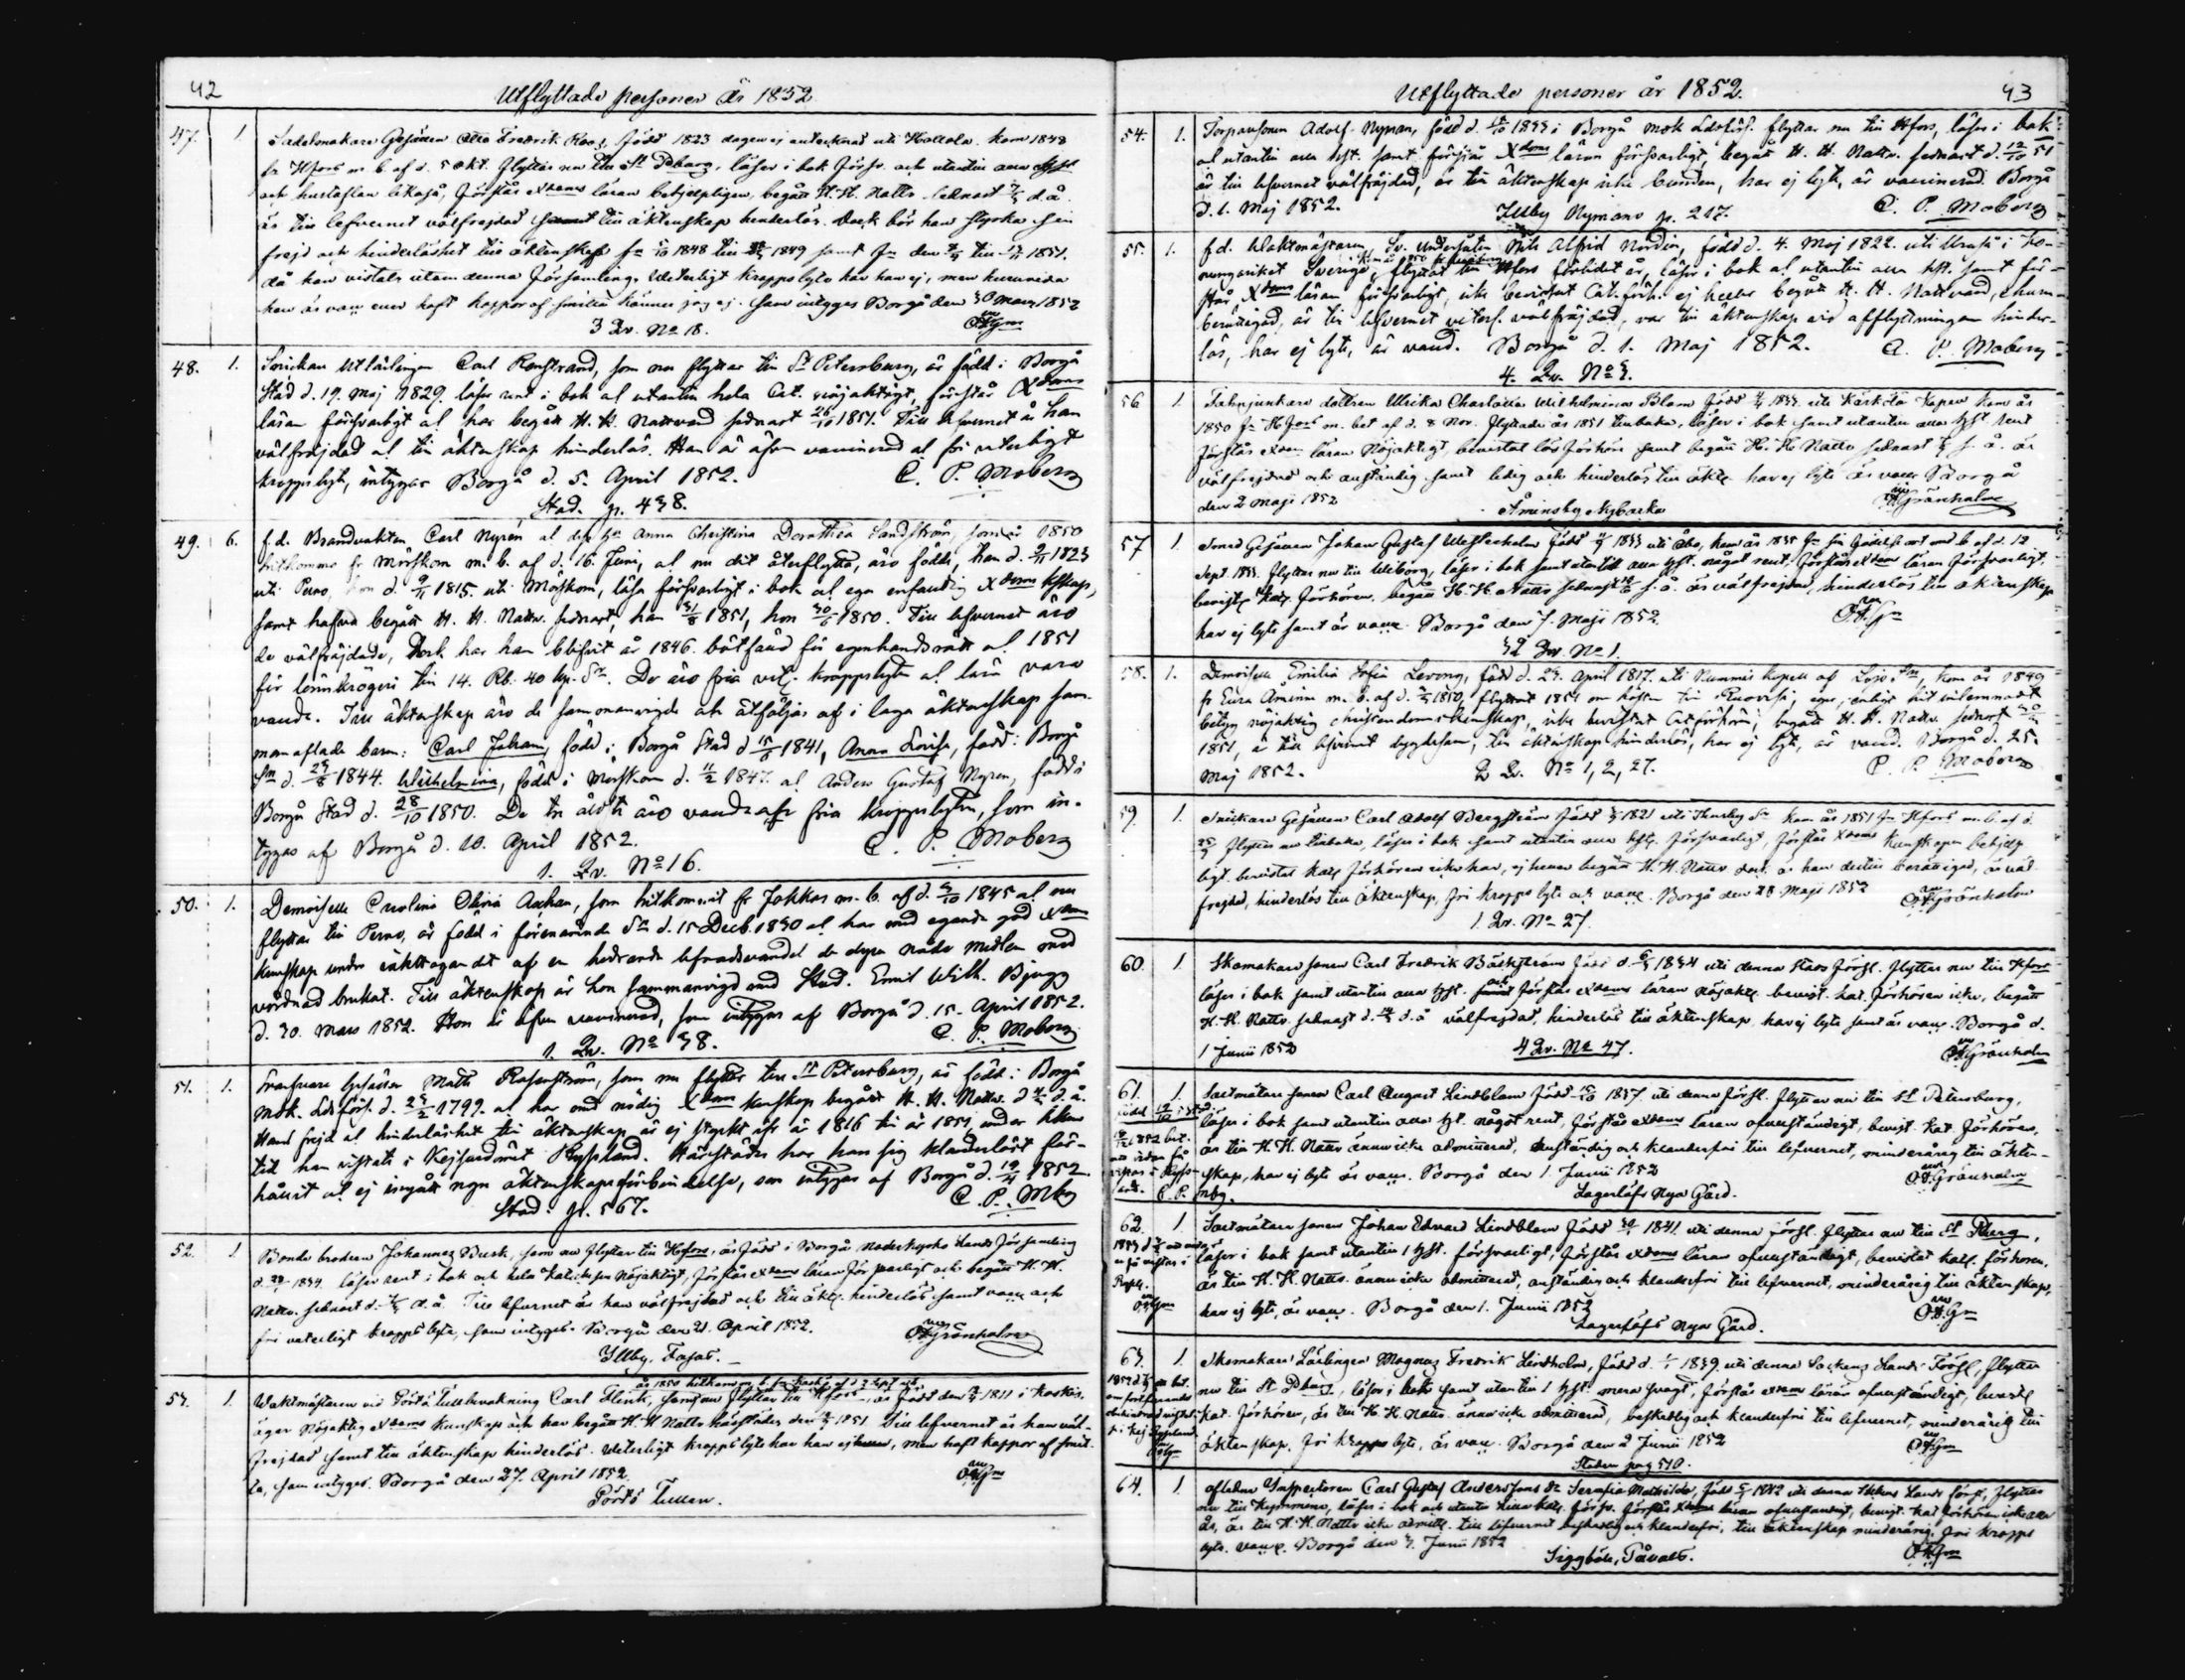 42
Utflyttade personer år 1852
47. 1. Sadelmakare Gesällen Otto Fredrik född 1823 dagen ej antecknad uti Hollola, kom 1848
fr Hfors m. b. af d. 5 Okt. flyttar nu till St Pburg, läser i bok förs. och utantill
och hustaflan likaså, förstår Xdoms läran behjelpligen, begått H. H. Nattv. sednast d. å.
är till lefvernet välfrejdad samt till äktenskap hinderlös. Dock bör han styrka sin
frejd och hinderlöshet till äktenskap fr 1848 till 1849 samt fr den till 1851.
då han vistats utom denna församling. Veterligt kroppslyte har han ej, men huruvida
han är vacc eller haft koppor af smitta känner jag ej. som intygas Borgå den 30 Mars 1852
3 Qv. No 18.
48. 1. Snickare Utlärlingen Carl Renstrand, som nu flyttar till St Petersburg, är född i Borgå
Stad d. 19. Maj 1829. läser rent i bok och utantill hela Cat. nöjaktigt, förstår Xdoms
läran försvarligt och har begått H. H. Nattvard sednast 26/10 1851. Till lefvernet är han
välfrejdad och till äktenskap hinderlös. Han är äfven vaccinerad och fri veterligt
kroppslyt, intygas Borgå d. 5. April 1852. C. P. Moberg
Stad. p. 438.
49. 6. f.d. Brandvakten Carl Nyrén och dess hu Anna Christina Dorothea Sandström, som år 1850
hitkommo fr Mörskom m. b. af d. 16. Juni, och nu dit återflytta, äro födde, han d. 1823
uti Perno, hon d. 9/11 1815. uti Mörskom, läsa försvarligt i bok och ega enfaldig Xdoms kskap,
samt hafva begått H. H. Nattv. sednast, han 31/8 1851, hon 30/6 1850. Till lefvernet äro
de välfräjdade, Dock har han blifvit år 1846. bötfälld för egenhandsrätt och 1851
för lönnkrögeri till 14. Rb. 40 kp. Sr. De äro fria vet. kroppslyten och lära vara
vaccde. Till äktenskap äro de sammanvigde och åtföljas af i laga äktenskap sam-
manaflade barn: Carl Johan, född i Borgå Stad d 15 1841, Anna Lovisa, född i Borgå
Sn d. 1844. Wilhelmina, född i Mörskom d. 11/2 1847. och Anders Gustaf Nyren, född i
Borgå Stad d. 28/10 1850. De tre äldsta äro vaccde fria kroppslyten, som in-
tygas af Borgå d. 10. April 1852. C. P. Moberg
1. Qv. No 16.
50. 1. Demoiselle Carolina Olivia, som hitkommit fr Jokkas m. b. af d. 1845 och nu
flyttar till Perno, är född i förenämnde Sn d. 15 Decb. 1830 och har med egande god Xdoms
kunskap under iakttagandet af en hedrande lefnadsvandel de dyra nåde medlen med
vördnad brukat. Till äktenskap är hon sammanvigd med Stud. Emil Wilh. Bjugg
d. 30. Mars 1852. Hon är äfven vaccinerad, som intygas af Borgå d. 15. April 1852.
1. Qv. No 38. C. P. Moberg
51. 1. Gesällen Matts Rosenström, som nu flyttar till St Petersburg, är född i Borgå
Mok. Ldsförs. d. 1799. och har med nödig Xdoms kunskap begått H. H. Nattv. d. å.
Hans frejd och hinderlöshet till äktenskap är ej styrkt ifr år 1816 till år 1851, under hken
tid han vistats i Kejsaredömet Ryssland. Härstädes har han sig klanderlöst för-
hållit och ej ingått ngn äktenskapsförbindelse, som intygas af Borgå d. 19/4 1852
Stad: p. 567. C. P. Mbg
52. 1. Bonde brodren Johannes Busk, som nu flyttar till Hfors, är född i Borgå Moderkyrko Lands Församling
d. 1834. läser rent i bok och hela Katichesen nöjaktigt, förstår Xdoms läran försvarligt och begått H. H.
Nattv. sednast d. d.å. Till lefvernet är han välfrejdad och till äkt. hinderlös samt vacc och
fri veterligt kroppslyte, som intygas Borgå den 21. April 1852. Grönholm
Illby. Fasas.
53. 1. Waktmästaren vid Pörtö Tullbevakning Carl Flink, som nu flyttar till Hfors är född den 1811 i Koskis,
äger nöjaktig Xdoms kunskap och har begått H. H. Nattv härstädes den 1851 till lefvernet är han väl-
frejdad samt till äktenskap hinderlös. Veterligt kroppslyte har han ej, men haft koppor af smit-
ta, som intygas. Borgå den 27. April 1852
Pörtö Tullen.
Utflyttade personer år 1852. 43
54. 1. Torparsonen Adolf Nyman, född d. 1833 i Borgå Mok Ldsförs. flyttar nu till Hfors, läser i bok
och utantill alla hst. samt förstår Xdoms läran försvarligt, begått H. H. Nattv. sednast d. 12/10 51
är till lefvernet välfräjdad, är till äktenskap icke bunden, har ej lyte, är vaccinerad. Borgå
d. 1. Maj 1852. Illby Nymans p. 217. C. P. Moberg
55. 1. f.d. Waktmästaren, Sv. undersåten Nils Alfrid Nordin, född d. 4. Maj 1822. uti i ko-
nungariket Sverige, flyttat till Hfors förlidet år, läser i bok och utantill alla hst. samt för-
står Xdoms läran försvarligt, icke bevistat Cat.förh. ej heller begått H. H. Nattvard, ehuru
berättigad, är till lefvernet veterl. välfräjdad, var till äktenskap vid afflyttningen hinder-
lös, har ej lyte, är vaccd. Borgå d. 1. Maj 1852. C. P. Moberg
4. Qv. No 3.
56 1. Fahnjunkare dottren Ulrika Charlotta Wilhelmina Blom född 1833. uti Kärkölä Kapell kom år
1850 fr Hfors m. bet af d. 8 Nov. flyttade år 1851 tillbaka, läser i bok samt utantill alla hst rent
förstår Xdoms läran nöjaktigt bevistat läs förhör samt begått H. H. Nattv sednast f. å. är
välfrejdad och anständig samt ledig och hinderlös till äkt. har ej lyte är vacc Borgå
den 2 Maji 1852 Grönholm
57 1. Smed Gesällen Johan Gustaf född 1833 uti Åbo, kom år 1835 fr sin födelseort med b. af d. 12
Sept. flyttar nu till Wiborg, läser i bok samt utantill alla hst. något rent, förstår Xdom läran försvarligt,
bevist. Kat. förhören. begått H. H. Nattv sednast f. å. är välfrejdad, hinderlös till äktenskap
har ej lyte samt är vacc. Borgå den 7. Maji 1852.
32 Qv. No 1.
58. 1. Demoiselle Emilia Sofia, född d. 24. April 1817. uti Nummis Kapell af Lojo Sn, kom år 1849
m. b. af d. 1850, flyttat 1851 om hösten till
betyg nöjaktig christendomskunskap, icke bevistat Catförhör, begått H. H. Nattv. sednast
1851, är till lefvernet dygdesam, till äktenskap hinderlös, har ej lyt, är vaccd. Borgå d. 25.
Maj 1852. 2 Qv. No 1, 2, 27. C. P. Moberg
59. 1. Snickare Gesällen Carl Adolf Bergström född 1821 uti Sn kom år 1851 fr Hfors m. b. af d.
flyttar nu tillbaka, läser i bok samt utantill alla hst. försvarligt, förstår Xdoms kunskapen behjelp-
ligt. bevistat Kat förhören icke har, ej heller begått H. H. Nattv dock är han dertill berättigad, är väl-
frejdad, hinderlös till äktenskap, fri kropps lyte och vacc. Borgå den 28 Maji 1852 Grönholm
1 Qv. No 27.
60. 1 Skomakare sonen Carl Fredrik Bäckström född d. 1834 uti denna Stads förs. flyttar nu till Hfors
läser i bok samt utantill alla hst. och förstår Xdoms läran nöjakt. bevist. Kat. förhören icke, begått
H. H. Nattv sednast d. d. å välfrejdad, hinderlös till äktenskap har ej lyte samt är vacc. Borgå d.
1 Junii 1852 4 Qv. No 47. Grönholm
61. 1. sonen Carl August Lindblom född 1837. uti denna förs. flyttar nu till St Petersburg,
läser i bok samt utantill alla hst. något rent, förstår Xdoms läran ofullständigt, bevist. Kat. förhören,
är till H. H. Nattv ännu icke admitterad, anständig och klanderfri till lefvernet, minderårig till äkten-
skap, har ej lyte är vacc. Borgå den 1. Junii 1852 Grönholm
Lagerlöfs Nya Gård.
62. 1 sonen Johan Edvard Lindblom född 1841. uti denna förs. flyttar nu till St Pburg,
läser i bok samt utantill 1 hst. försvarligt, förstår Xdoms läran ofullständigt, bevistat Kat. förhören.
är till H. H. Nattv. ännu icke admitterad, anständig och klanderfri till lefvernet, minderårig till äktenskap,
har ej lyte, är vacc. Borgå den 1. Junii 1852
Lagerlöfs Nya Gård.
63. 1. Skomakare Lärlingen Magnus Fredrik Lindholm, född d. 1839. uti denna Sockens Lands Förs., flyttar
nu till St Pburg, läser i bok samt utantill 1 hst. mera svagt, förstår Xdoms läran ofullständigt, bevist.
Kat. förhören, är till H. H. Nattv. ännu icke admitterad, beskedlig och klanderfri till lefvernet, minderårig till
äktenskap, fri kropps lyte, är vacc. Borgå den 2 Junii 1852
Staden pag 510.
64. 1. Aflidne Inspektoren Carl Gustaf Anderssons dr Serafia Mathilda, född 1842 uti denna Sockens Lands förs., flyttar
nu till, läser i bok och utantill förs. förstår Xdoms läran ofullständigt, bevist. Kat förhören icke
är till H. H. Nattv icke admitt. till lefvernet beskedlig och klanderfri, till äktenskap minderårig, fri kropps
lyte. vacc. Borgå den 3. Junii 1852
Siggböle, Påvals.